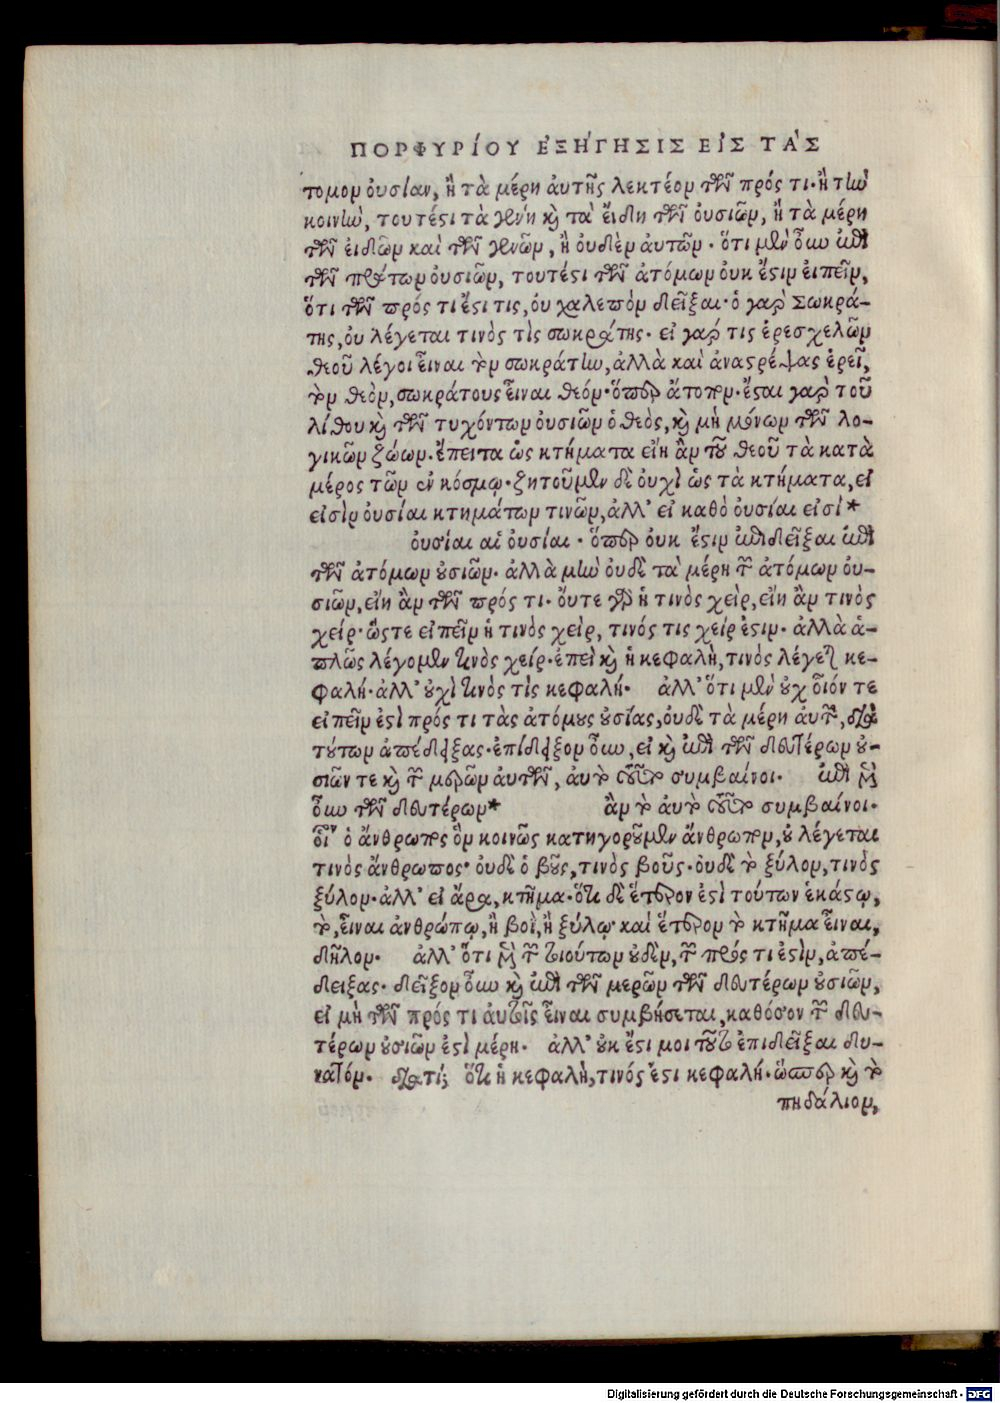 ΠΟΡΦΥΡΊΟΥ ἘΞΉΓΗΣΙΣ ΕἸΣ ΤᾺΣ
τομον οὐσίαν, ἢ τὰ μέρη αὐτῆς λεκτέον τῶν πρός τι· ἢ τὴν
κοινὴν, τουτέστι τὰ γένη καὶ τὰ εἴδη τῶν οὐσιῶν, ἢ τὰ μέρη
τῶν εἰδῶν καὶ τῶν γενῶν, ἢ οὐδὲν αὐτῶν· ὅτι μὲν οὖν ἐπὶ
τῶν πρώτων οὐσιῶν, τουτέστι τῶν ἀτόμων οὐκ ἔστιν εἰπεῖν,
ὅτι τῶν πρός τι ἔστι τις, οὐ χαλεπὸν δεῖξαι· ὁ γὰρ Σωκρά-
της, οὐ λέγεται τινὸς τὶς σωκράτης· εἰ γάρ τις ἐρεσχελῶν
θεοῦ λέγοι εἶναι τὸν σωκράτην, ἀλλὰ καὶ ἀναστρέψας ἐρεῖ,
τὸν θεὸν, σωκράτους εἶναι θεόν· ὅπερ ἄτοπον· ἔσται γὰρ τοῦ
λίθου καὶ τῶν τυχόντων οὐσιῶν ὁ θεὸς, καὶ μὴ μόνων τῶν λο-
γικῶν ζώων· ἔπειτα ὡς κτήματα εἴη ἂν τοῦ θεοῦ τὰ κατὰ
μέρος τῶν ἐν κόσμῳ· ζητοῦμεν δὲ οὐχὶ ὡς τὰ κτήματα, εἰ
εἰσὶν οὐσίαι κτημάτων τινῶν, ἀλλ' εἰ καθὸ οὐσίαι εἰσὶ*
οὐσίαι αἱ οὐσίαι· ὅπερ οὐκ ἔστιν ἐπιδεῖξαι ἐπὶ
τῶν ἀτόμων οὐσιῶν· ἀλλὰ μὴν οὐδὲ τὰ μέρη τῶν ἀτόμων οὐ-
σιῶν, εἴη ἂν τῶν πρός τι· οὔτε γὰρ ἡ τινὸς χεὶρ, εἴη ἂν τινὸς
χείρ· ὥστε εἰπεῖν ἡ τινὸς χεὶρ, τινός τις χείρ ἐστιν· ἀλλὰ ἁ-
πλῶς λέγομεν τινὸς χείρ· ἐπεὶ καὶ ἡ κεφαλὴ, τινὸς λέγεται κε-
φαλή· ἀλλ' οὐχὶ τινὸς τὶς κεφαλή· ἀλλ' ὅτι μὲν οὐχ οἷόν τε
εἰπεῖν ἐστὶ πρός τι τὰς ἀτόμους οὐσίας, οὐδὲ τὰ μέρη αὐτῶν, διὰ
τούτων ἀπέδειξας· ἐπίδειξον οὖν, εἰ καὶ ἐπὶ τῶν δευτέρων οὐ-
σιῶν τε καὶ τῶν μερῶν αὐτῶν, αὐτὸ τοῦτο συμβαίνοι· ἐπὶ μὲν
οὖν τῶν δευτέρων* ἂν τὸ αὐτὸ τοῦτο συμβαίνοι·
οἷον ὁ ἄνθρωπος ὃν κοινῶς κατηγοροῦμεν ἄνθρωπον, οὐ λέγεται
τινὸς ἄνθρωπος· οὐδὲ ὁ βοῦς, τινὸς βοῦς· οὐδὲ τὸ ξύλον, τινὸς
ξύλον· ἀλλ' εἰ ἄρα, κτῆμα· ὅτι δὲ ἕτερον ἐστὶ τούτων ἑκάστῳ,
τὸ, εἶναι ἀνθρώπῳ, ἢ βοῒ, ἢ ξύλῳ· καὶ ἕτερον τὸ κτῆμα εἶναι,
δῆλον· ἀλλ' ὅτι μὲν τῶν τοιούτων οὐδὲν, τῶν πρός τι ἐστὶν, ἀπέ-
δειξας· δεῖξον οὖν καὶ ἐπὶ τῶν μερῶν τῶν δευτέρων οὐσιῶν,
εἰ μὴ τῶν πρός τι αὐτοῖς εἶναι συμβήσεται, καθόσον τῶν δευ-
τέρων οὐσιῶν ἐστὶ μέρη· ἀλλ' οὐκ ἔστι μοι τοῦτο ἐπιδεῖξαι δυ-
νατόν· διατί; ὅτι ἡ κεφαλὴ, τινός ἐστι κεφαλή· ὥσπερ καὶ τὸ
πηδάλιον,
Digitalisierung gefördert durch die Deutsche Forschungsgemeinschaft - DFG